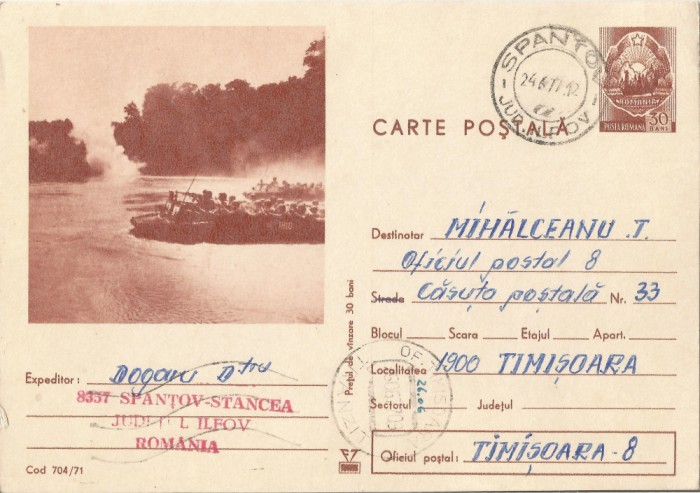 CARTE POȘTALĂ
SPANȚOV
24.6.77.12
JUD. ILFOV
ROMÂNIA
POSTA ROMANA 30 BANI
Destinatar MIHĂLCEANU .T.
Oficiul postal 8
Strada Căsuța poștală Nr. 33
Blocul Scara Etajul Apart.
Localitatea 1900 TIMIȘOARA
Sectorul Județul
Oficiul poștal: TIMIȘOARA-8
Prețul de vînzare 30 bani
Expeditor: Dogaru Dtru
8357 SPANTOV-STANCEA
JUDETUL ILFOV
ROMANIA
26.06
Cod 704/71